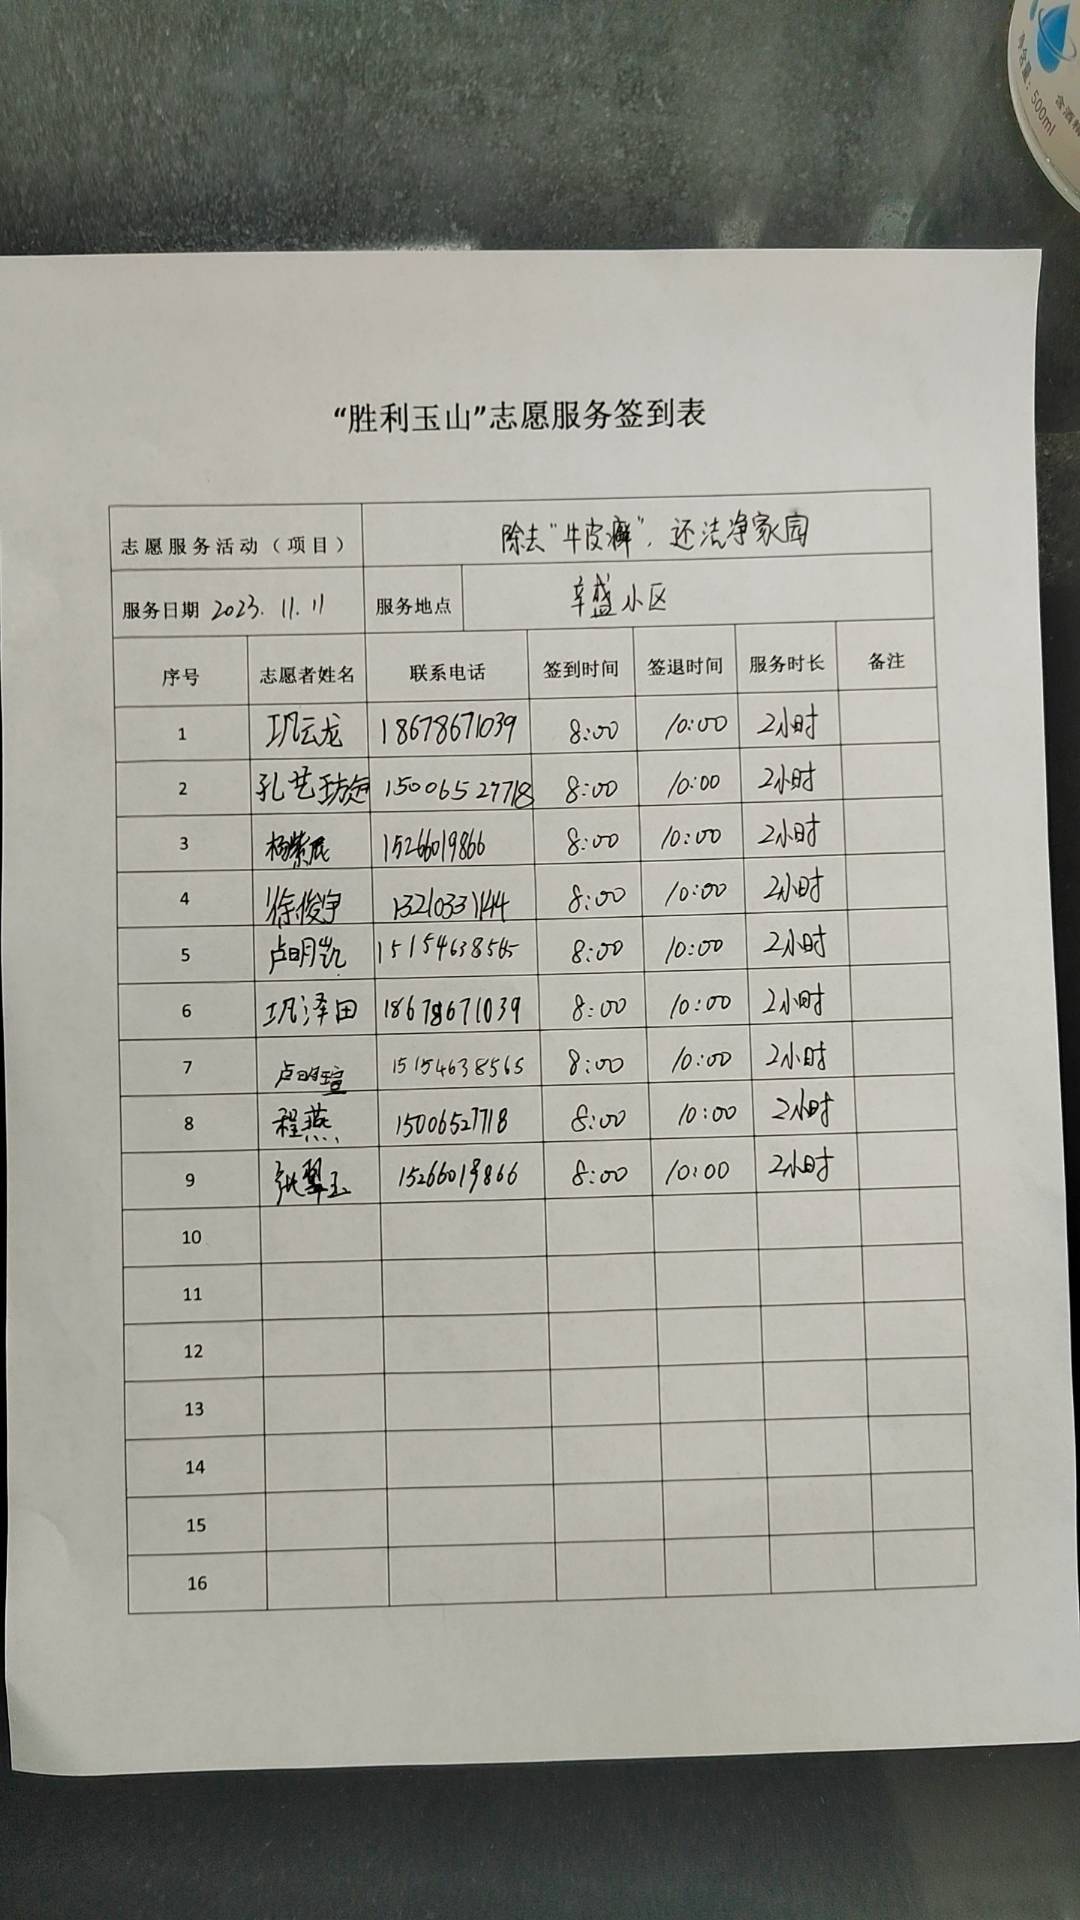 净含量：500ml
含酒精
“胜利玉山”志愿服务签到表
志愿服务活动（项目） 除去“牛皮癣”，还洁净家园
服务日期 2023.11.11 服务地点 辛盛小区
序号 志愿者姓名 联系电话 签到时间 签退时间 服务时长 备注
1 巩云龙 18678671039 8:00 10:00 2小时
2 孔艺 15006527718 8:00 10:00 2小时
3 杨紫 15266019866 8:00 10:00 2小时
4 徐俊宇 13210331144 8:00 10:00 2小时
5 卢明凯 15154638565 8:00 10:00 2小时
6 巩泽田 18678671039 8:00 10:00 2小时
7 卢明瑄 15154638565 8:00 10:00 2小时
8 程燕 15006527718 8:00 10:00 2小时
9 张翠玉 15266019866 8:00 10:00 2小时
10
11
12
13
14
15
16